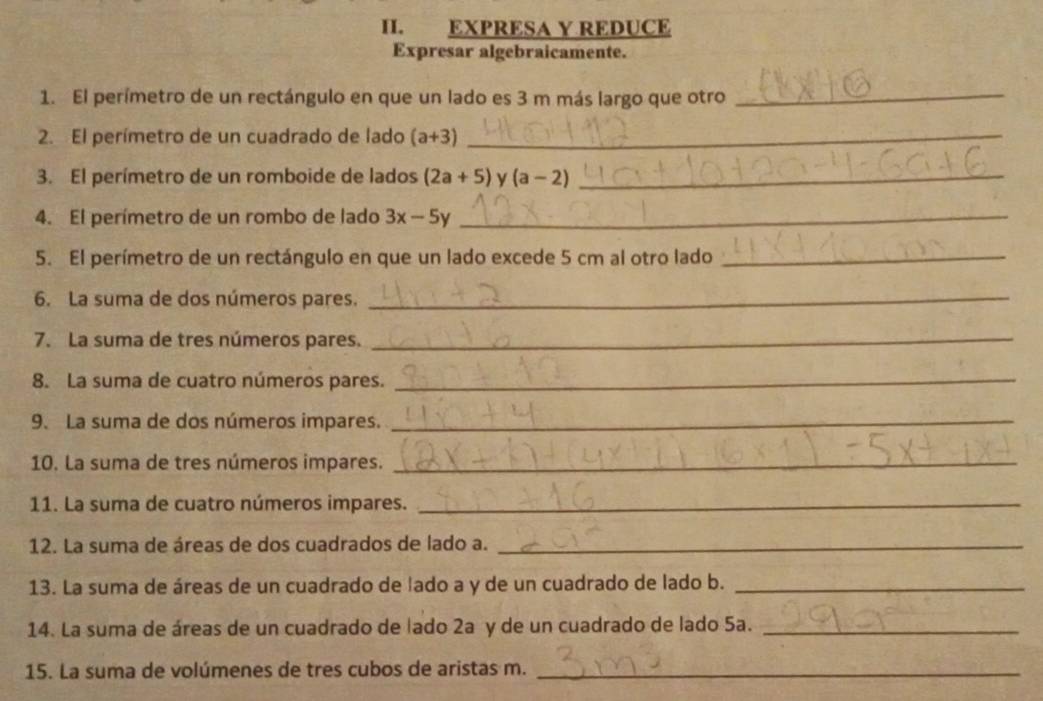 II. EXPRESA Y REDUCE
Expresar algebraicamente.
1. El perímetro de un rectángulo en que un lado es 3 m más largo que otro
2. El perímetro de un cuadrado de lado (a+3) 4a+12
3. El perímetro de un romboide de lados (2a + 5) y (a – 2) 4a+10+2a-4=6a+6
4. El perímetro de un rombo de lado 3x – 5y 12x-20y
5. El perímetro de un rectángulo en que un lado excede 5 cm al otro lado 4x+10 cm
6. La suma de dos números pares. 4n+2
7. La suma de tres números pares. 6n+6
8. La suma de cuatro números pares. 8n+12
9. La suma de dos números impares. 4n+4
10. La suma de tres números impares. (2x+1)+(4x+1)
11. La suma de cuatro números impares. 8n+16
12. La suma de áreas de dos cuadrados de lado a. 2a²
13. La suma de áreas de un cuadrado de lado a y de un cuadrado de lado b.
14. La suma de áreas de un cuadrado de lado 2a y de un cuadrado de lado 5a. 29a²
15. La suma de volúmenes de tres cubos de aristas m. 3m³